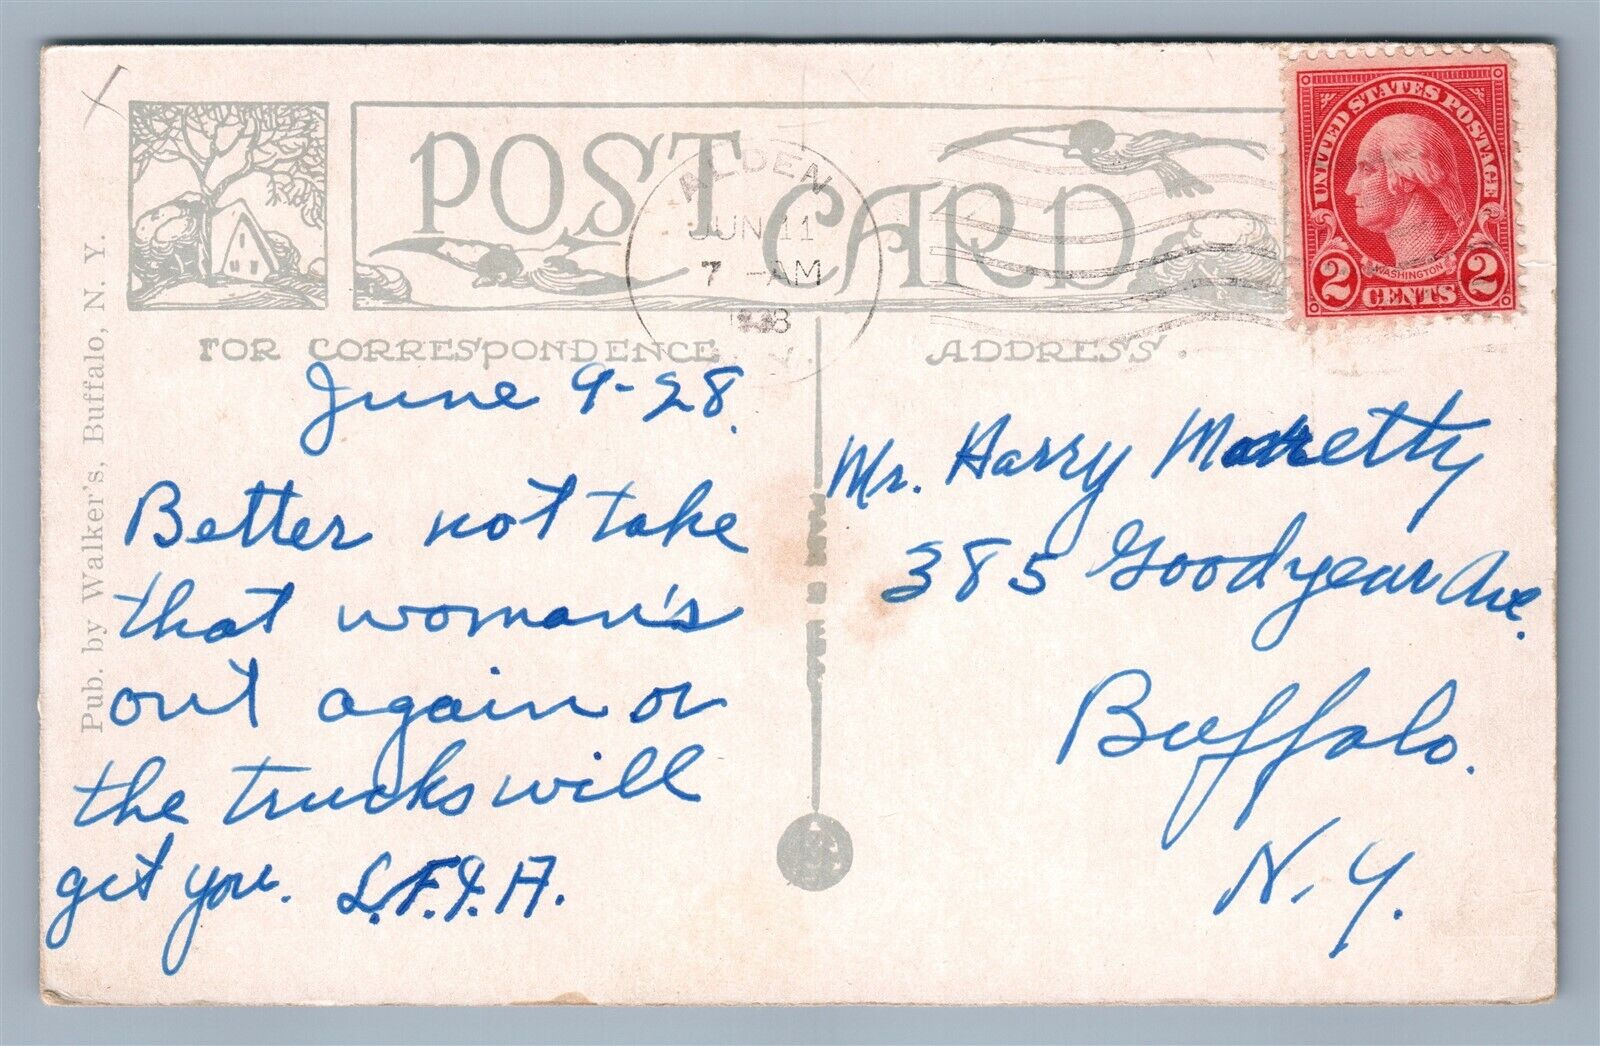 POST CARD
ALDEN
JUN 11
7 -AM
N.Y.
UNITED STATES POSTAGE
WASHINGTON
2 CENTS 2
FOR CORRESPONDENCE
ADDRESS.
Pub. by Walker's, Buffalo, N. Y.
June 9-28.
Better not take
that woman's
out again or
the trucks will
get you. L.F.&H.
Mr. Harry
385 Goodyear Ave.
Buffalo.
N.Y.